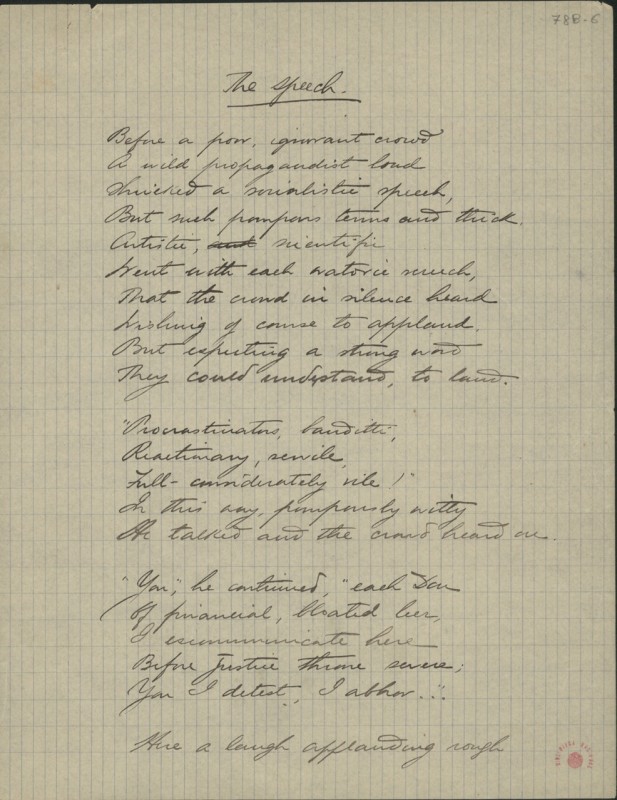 78B-6
The Speech.
Before a poor, ignorant crowd
A wild propagandist loud
Shrieked a socialistic speech,
But such pompous terms and thick.
Artistic, and scientific
Went with each oratoric screech,
That the crowd in silence heard
Wishing of course to applaud.
But expecting a strong word
They could understand, to laud.
"Procrastinators, banditti,
Reactionary, servile,
Full-considerately vile!"
In this way, pompously witty
He talked and the crowd heard on.
"You", he continued, "each Don
Of financial, bloated leer,
I excommunicate here
Before Justice throne severe;
You I detest, I abhor...."
Here a laugh applauding rough